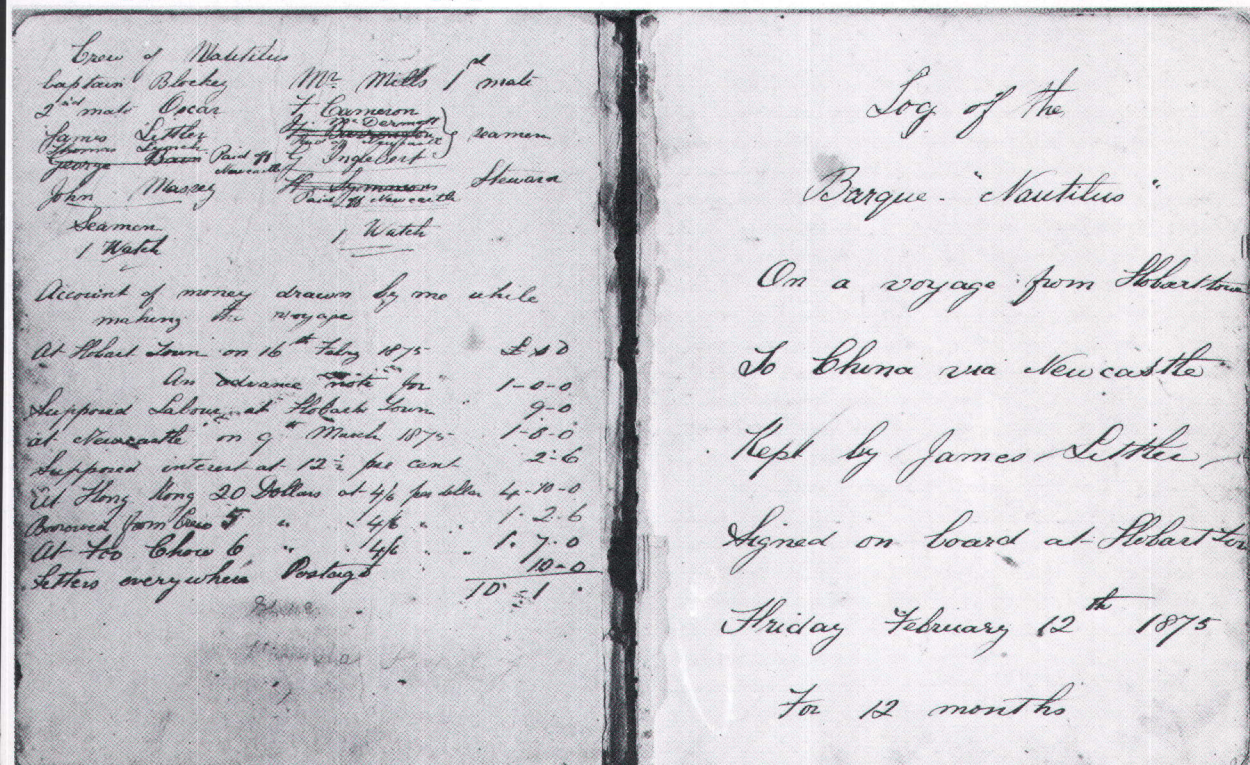 Crew of Nautilus
Captain Blockey Mr. Mills 1st mate
2nd mate Oscar F Cameron
James Littler Mc Dermott
Thomas Lynch seamen
George Bain Paid off Newcastle G Inglebert
John Massey H Symmons Steward
Paid off Newcastle
Seamen
1 Watch 1 Watch
Account of money drawn by me while
making the voyage
At Hobart Town on 16th Febry 1875 £ s D
An advance note for 1-0-0
Supposed Labour at Hobart Town 9-0
at Newcastle on 9th March 1875 1-0-0
Supposed interest at 12½ per cent 2-6
At Hong Kong 20 Dollars at 4/6 per dollar 4-10-0
Borrowed from Crew 5 " " 4/6 " " 1-2-6
At Foo Chow 6 " " 4/6 " " 1-7-0
Letters everywhere Postage 10-0
10 - 1
Log of the
Barque "Nautilus"
On a voyage from Hobart town
To China via Newcastle
Kept by James Littler
Signed on board at Hobart Town
Friday February 12th 1875
For 12 months